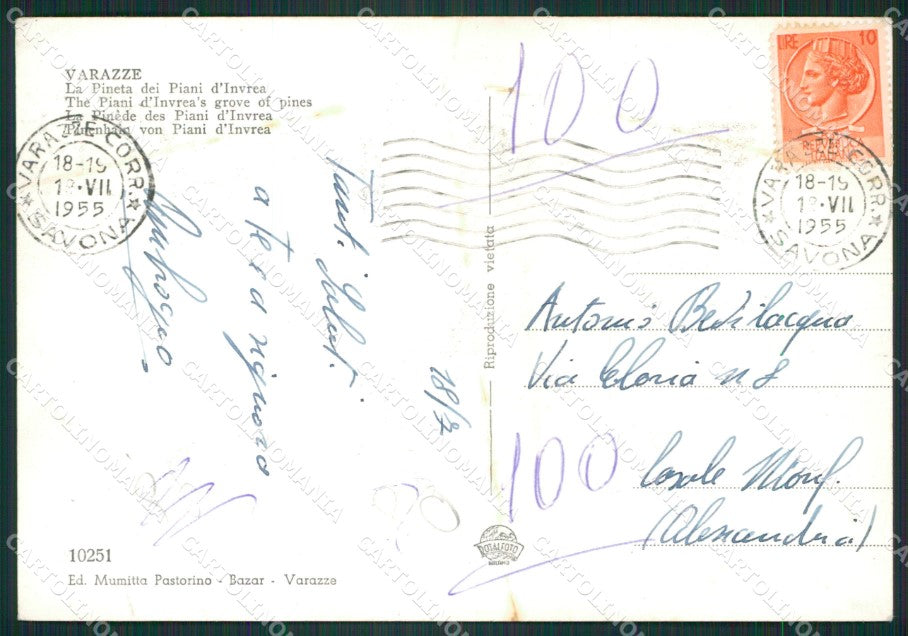 VARAZZE
La Pineta dei Piani d'Invrea
The Piani d'Invrea's grove of pines
La Pinède des Piani d'Invrea
Pinenhain von Piani d'Invrea
VARAZZE CORR.
18-19
18·VII
1955
SAVONA
LIRE 10
100
VARAZZE CORR.
18-19
18·VII
1955
SAVONA
18/7
Tant. Saluti
a te e signora
Riproduzione vietata
Antonio Bevilacqua
Via Gloria n 8
Casale Monf.
(Alessandria)
100
ROTALFOTO
MILANO
10251
Ed. Mumitta Pastorino - Bazar - Varazze
CARTOLINOMANIA